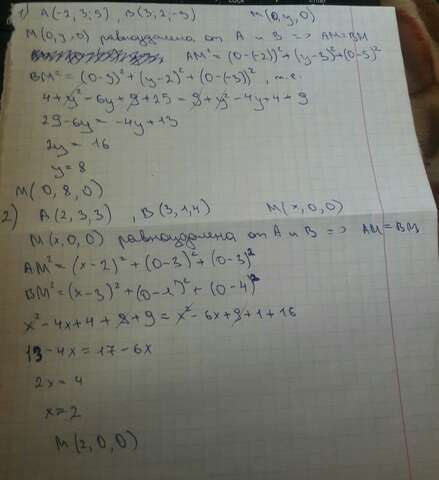 1) A(-2,3,5) , B(3,2,-3) M(0,y,0)
M(0,y,0) равноудалена от A и B => AM=BM
AM²=(0-(-2))²+(y-3)²+(0-5)²
BM²=(0-3)²+(y-2)²+(0-(-3))², т.е.
4+y²-6y+9+25=9+y²-4y+4+9
29-6y=-4y+13
2y=16
y=8
M(0,8,0)
2) A(2,3,3) , B(3,1,4) M(x,0,0)
M(x,0,0) равноудалена от A и B => AM=BM
AM²=(x-2)²+(0-3)²+(0-3)²
BM²=(x-3)²+(0-1)²+(0-4)²
x²-4x+4+9+9=x²-6x+9+1+16
13-4x=17-6x
2x=4
x=2
M(2,0,0)